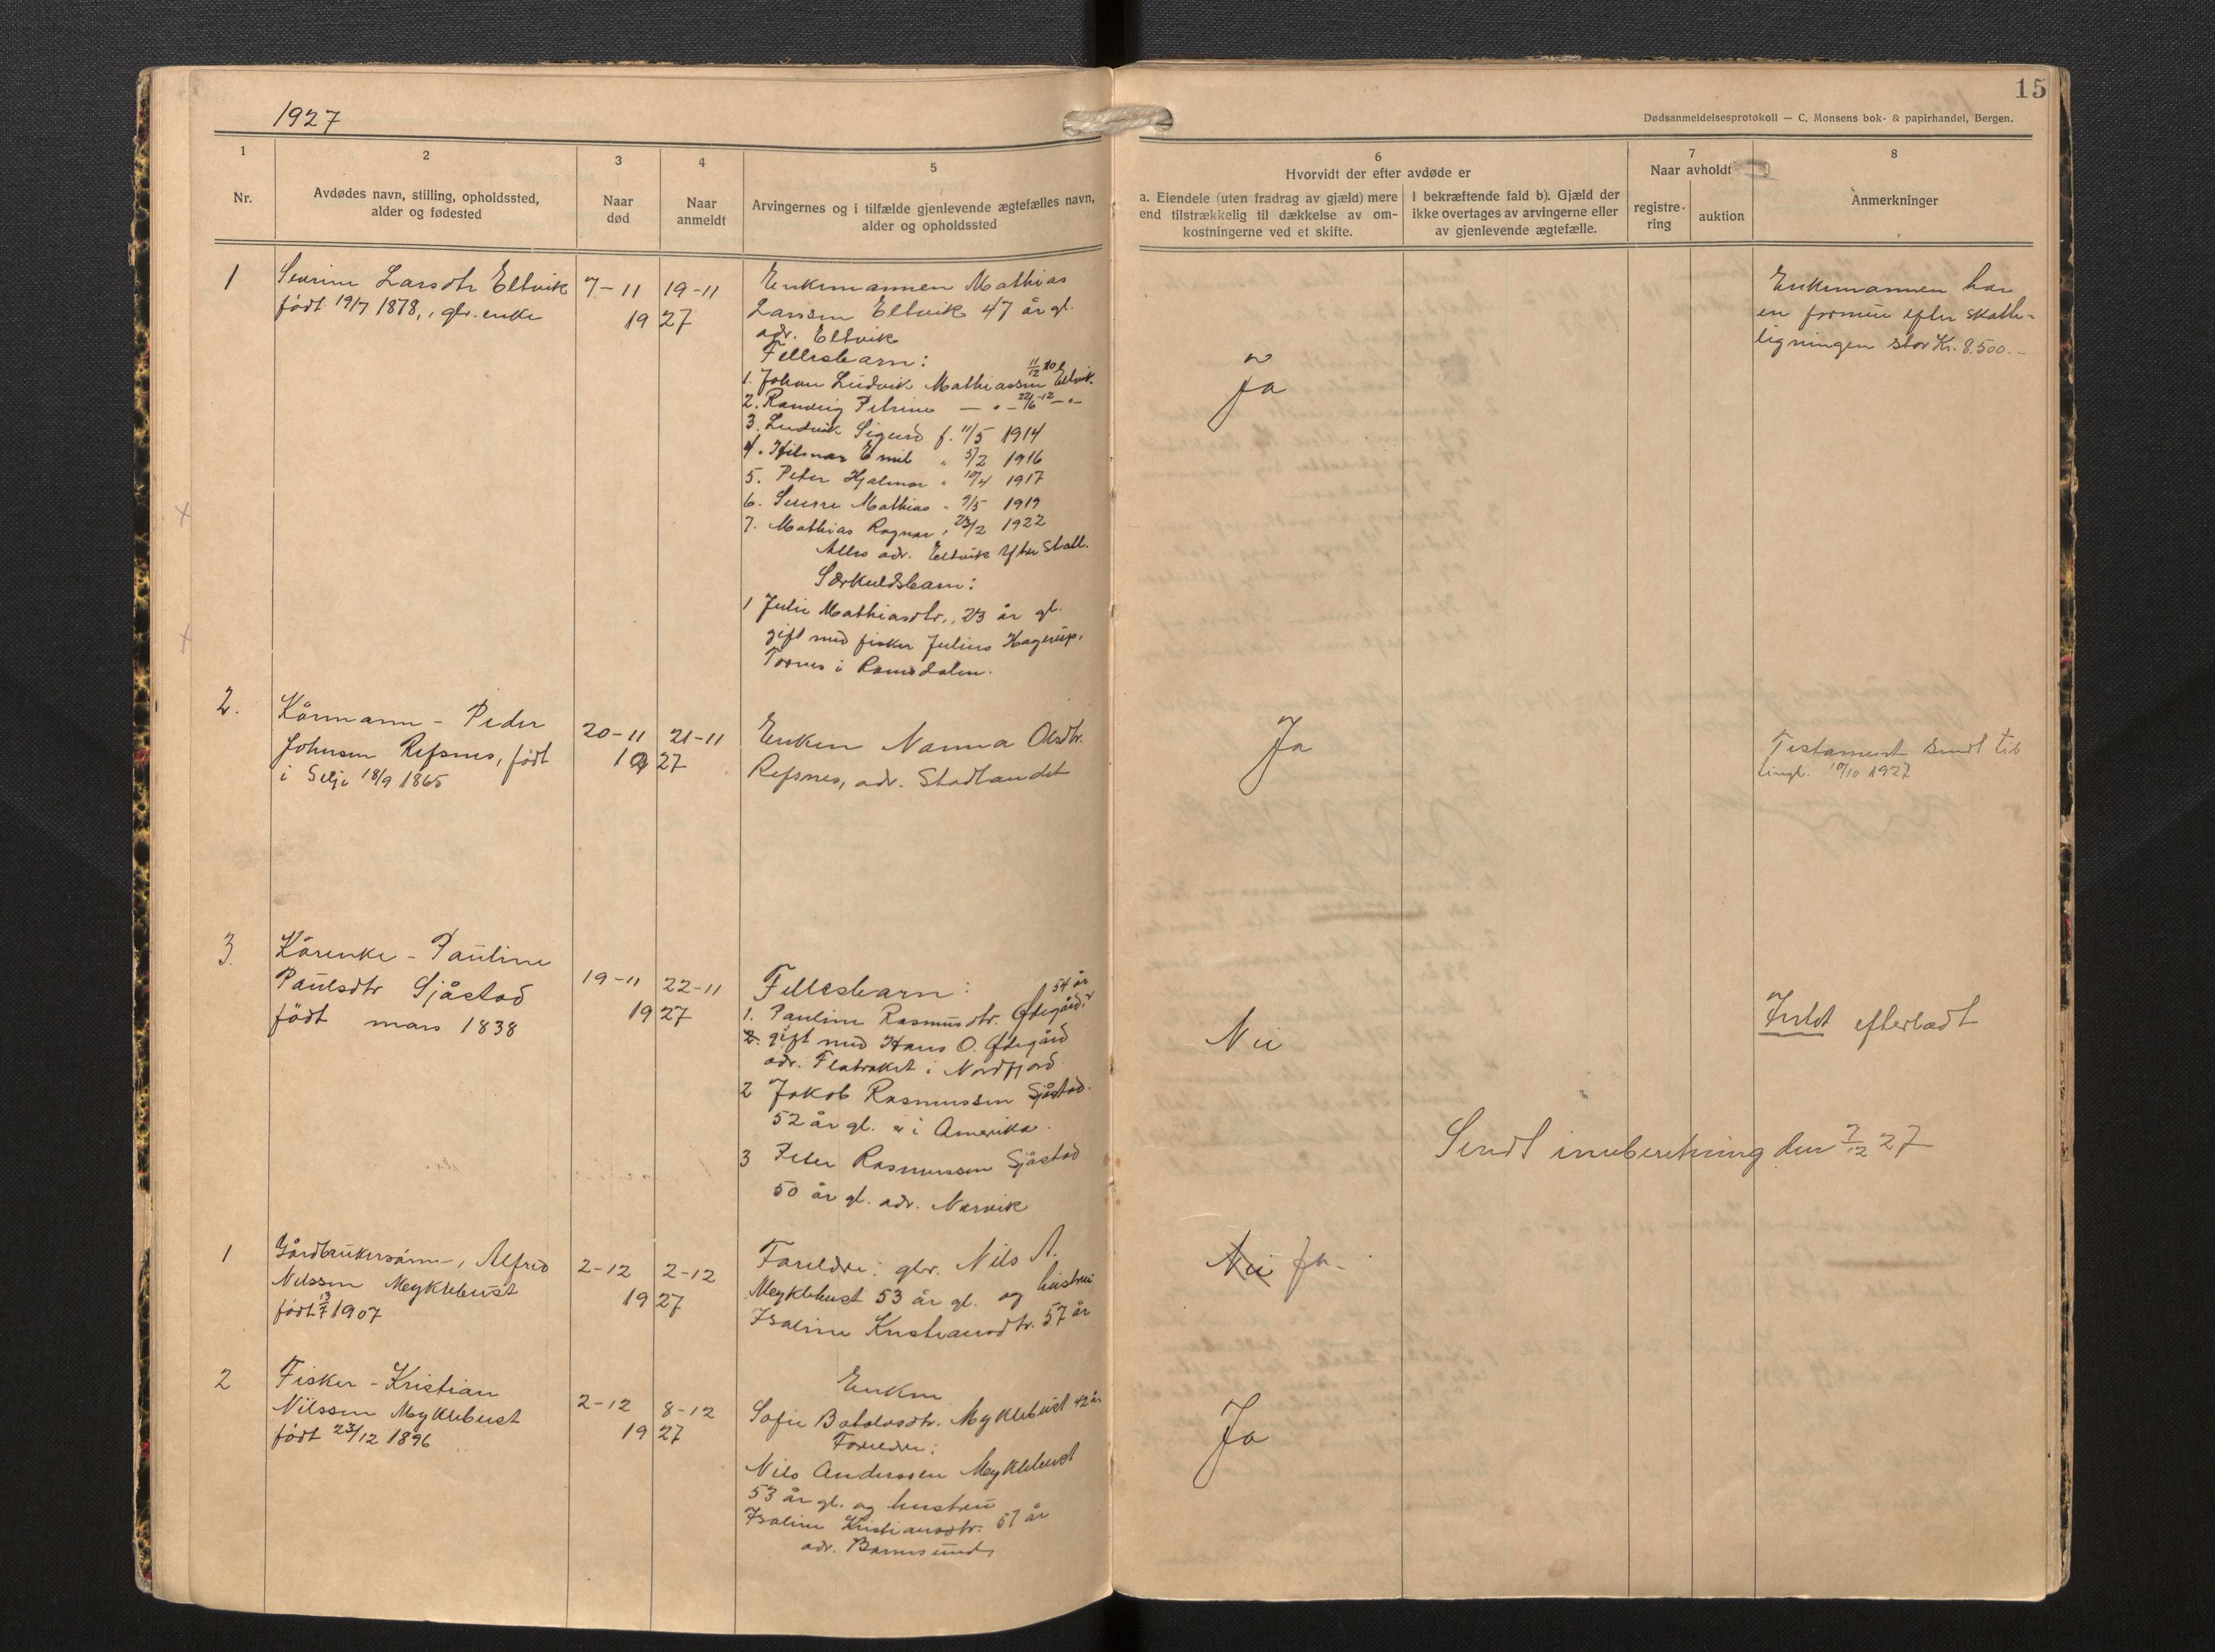 1927
15
Dødsanmeldelsesprotokoll — C. Monsens bok- & papirhandel, Bergen.
1
Nr.
2
Avdødes navn, stilling, opholdssted,
alder og fødested
3
Naar
død
4
Naar
anmeldt
5
Arvingernes og i tilfælde gjenlevende ægtefælles navn,
alder og opholdssted
6
Hvorvidt der efter avdøde er
a. Eiendele (uten fradrag av gjæld) mere
end tilstrækkelig til dækkelse av om-
kostningerne ved et skifte.
I bekræftende fald b). Gjæld der
ikke overtages av arvingerne eller
av gjenlevende ægtefælle.
7
Naar avholdt
registre-
ring
auktion
8
Anmerkninger
1
Sevrine Larsdtr Eltvik
født 19/7 1878, gbr. enke
7-11
19-11
1927
Enkemannen Mathias
Larssen Eltvik 47 år gl.
adr. Eltvik
Fellesbarn:
1. Johan Ludvik Mathiassen Eltvik
2. Randeig Petrine
3. Ludvik Sigurd f. 11/5 1914
4. Hilmar Emil " 5/2 1916
5. Peter Hjalmar " 10/4 1917
6. Sverre Mathias " 9/5 1919
7. Mathias Ragnar " 23/2 1922
Alles adr. Eltvik Ytre Statt.
Særkuldsbarn:
1 Julie Mathiasdtr., 23 år gl.
gift med fisker Julius Hagerup,
Tornes i Romsdalen.
Ja
Enkemannen har
en formue efter skatte-
ligningen stor Kr. 8.500.-
2.
Kårmann - Peder
Johnsen Refsnes, født
i Selje 18/9 1865
20-11
21-11
1927
Enken Nanna Olsdtr.
Refsnes, adr. Stadlandet
Ja
Testament sendt til
tingl. 10/10 1927
3.
Kårenke - Pauline
Paulsdtr Sjåstad
født mars 1838
19-11
22-11
1927
Fellesbarn: 54 år
1. Pauline Rasmusdtr. Ødegård
gift med Hans O. Ødegård
adr. Flatraket i Nordfjord
2 Jakob Rasmussen Sjåstad.
52 år gl. er i Amerika.
3 Peter Rasmussen Sjåstad
50 år gl. adr. Narvik
Nei
Intet efterladt
Sendt innberetning den 7/12 27
1
Gårdbrukersønn, Alfred
Nilssen Myklebust
født 13/7 1907
2-12
2-12
1927
Foreldre: gbr. Nils A.
Myklebust 53 år gl. og hustru
Isaline Kristiansdtr. 57 år
Nei Ja.
2
Fisker - Kristian
Nilssen Myklebust
født 23/12 1896
2-12
8-12
1927
Enken
Sofie Botolvsdtr. Myklebust 42 år
Foreldre:
Nils Anderssen Myklebust
53 år gl. og hustru
Isaline Kristiansdtr. 57 år
adr. Barmsund
Ja